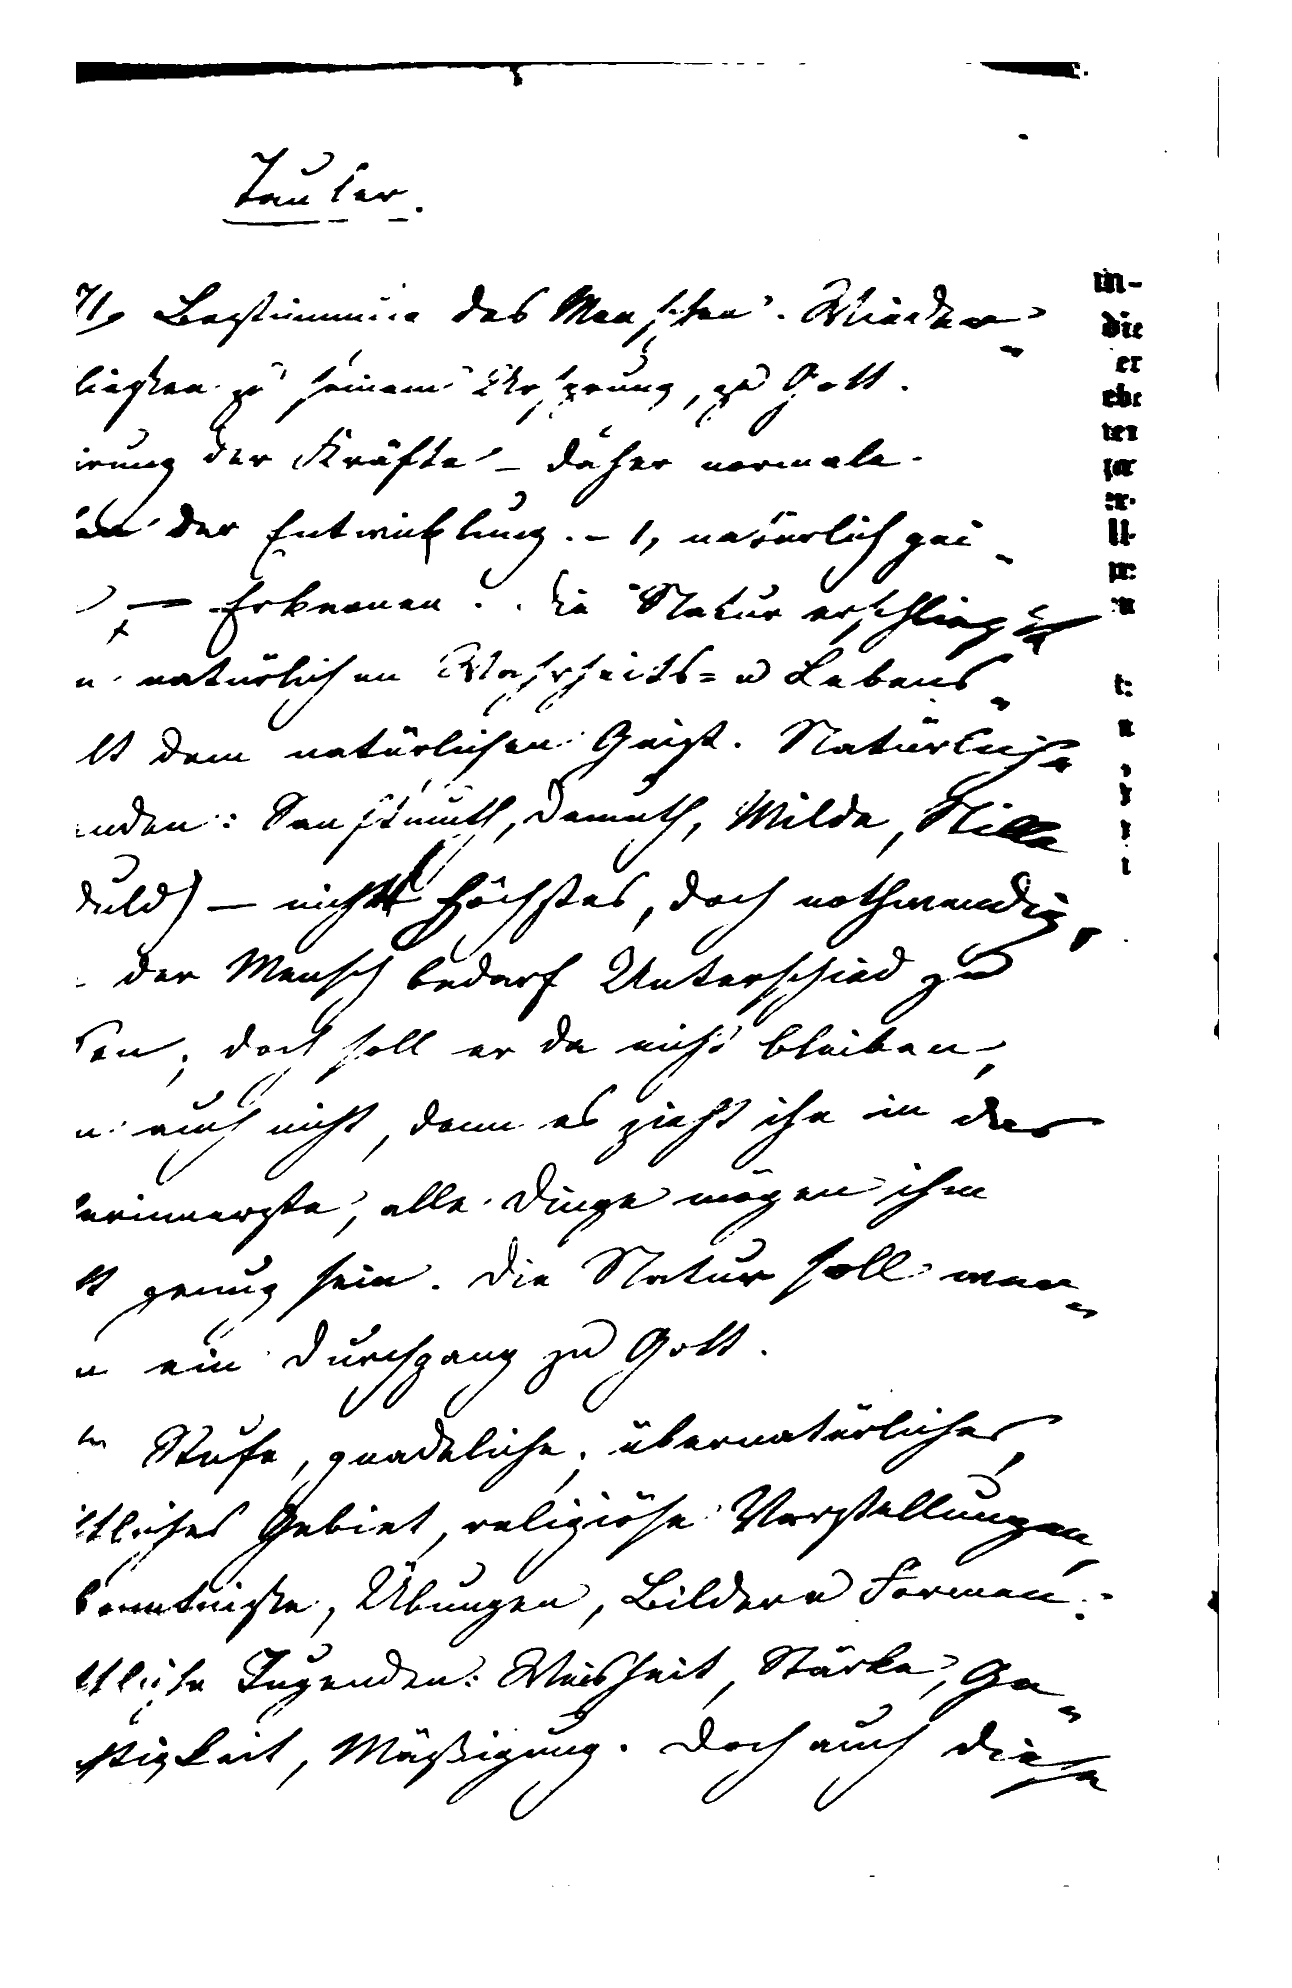 Tauler.
Bestimmung des Menschen. Wieder-
fließen zu seinem Ursprung, zu Gott.
irung der Kräfte – daher normale.
der Entwicklung. – 1, natürlich gei-
– Erkennen. Die Natur erschließt
n natürlichen Wahrheits= u Lebens-
lt dem natürlichen Geist. Natürliche
enden: Sanftmuth, Demuth, Milde, Stille
duld) – nicht Höchstes, doch nothwendig,
der Mensch bedarf Unterschied zu
ken; doch soll er da nicht bleiben,
n auch nicht, denn es zieht ihn in das
erinnerste, alle Dinge mögen ihm
ht genug sein. Die Natur soll wer-
n ein Durchgang zu Gott.
te Stufe, gnadeliche; übernatürliches,
ttliches Gebiet, religiöse Vorstellungen,
kenntnisse, Übungen, Bilder u Formen:
ttliche Tugenden: Weisheit, Stärke, Ge-
htigkeit, Mäßigung. Doch auch diese
in-
die
er
ehe
ter